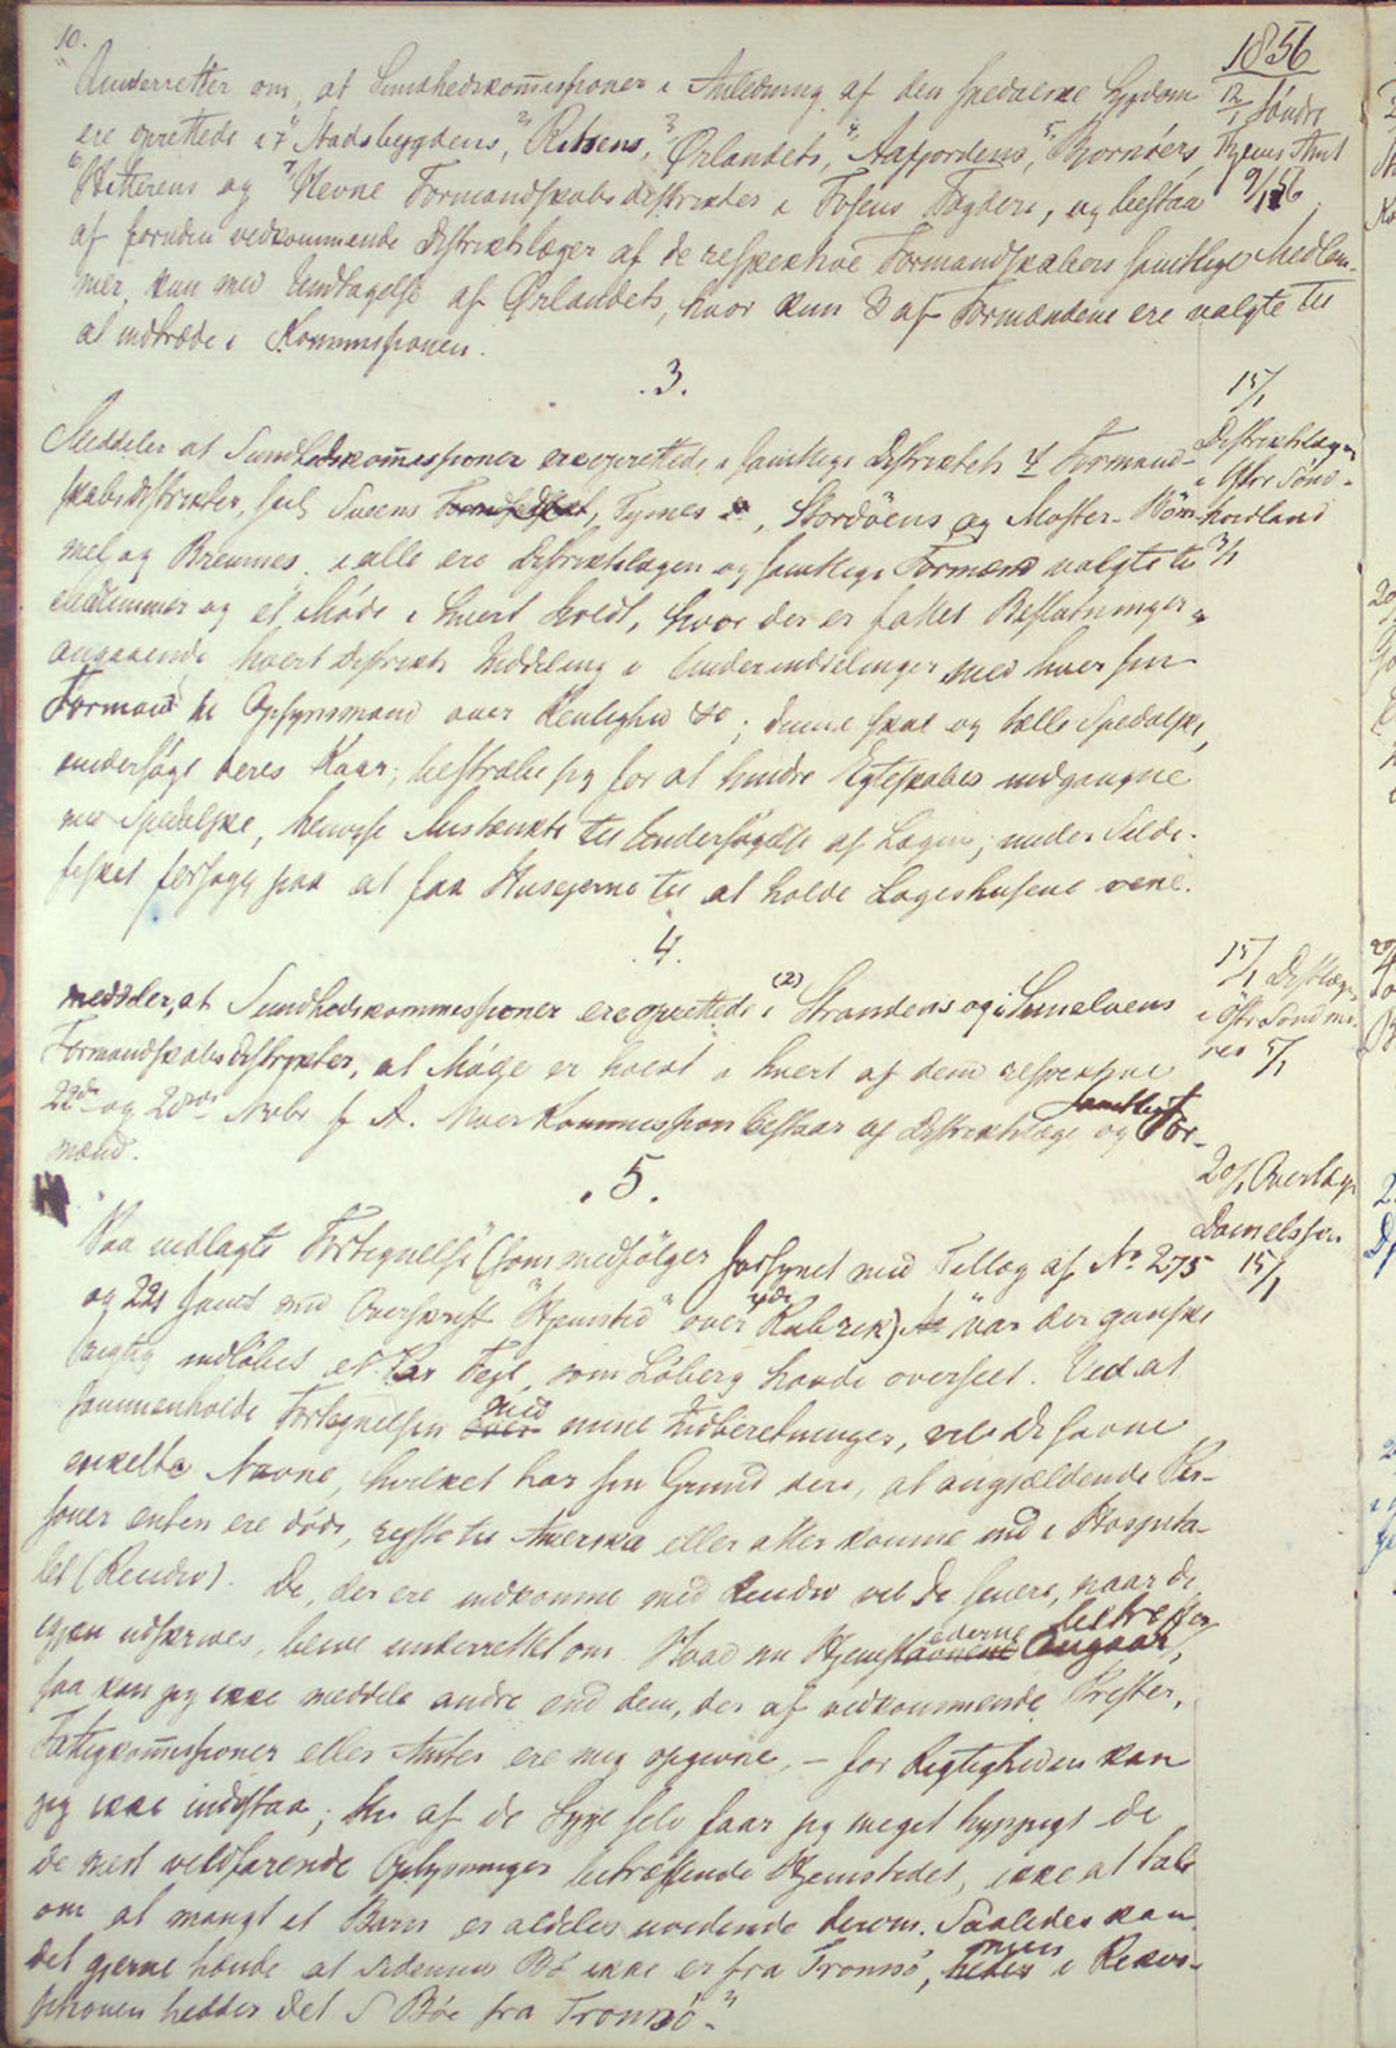 10.
1856
Underretter om, at Sundhedskom̅issioner i Anledning af den spedalske Sygdom
ere oprettede i 1) Stadsbygdens, 2) Rissens, 3) Ørlandets, 4) Aafjordens, 5) Bjørnörs,
6) Hitterens og 7) Hevne Formandskabsdistrikter i Fosens Fogderi, og bestaa
af foruden vedkommende Distriktslæger af de respektive Formandskabers samtlige Medlem-
mer, kun med Undtagelse af Ørlandets, hvor kun 3 af Formændene ere valgte til
at indtræde i Kommissionen.
12/1 Söndre
Thjems Amt
9/1 56
.3.
15/1
Distriktslægen
i Östre Sönd-
hordland
3/1
Meddeler at Sundhedskom̅issioner ere oprettede i samtlige Distriktets 4 Formand-
skabsdistrikter, Tysnes, Stordöens og Moster-Böm-
mel og Bremnes, i alle ere Distriktslægen og samtlige Formænd valgte til
Medlemmer og et Möde i hvert holdt, hvor der er fattet Beslutninger
angaaende hvert Distrikts Inddeling i Underinddelinger med hver sin
Formand til Opsynsmand over Renlighed &c; denne skal og tælle Spedalske,
undersöge deres Kaar, bestræbe sig for at hindre Egteskabers indgaaelse
med Spedalske, henvise Mistænkte til Undersögelse af Lægen, under Silde-
fisket forsöge paa at faa Huseierne til at holde Logishusene rene.
.4.
15/1 Distlægen
i Östre Söndmö-
res 5/1
meddeler, at Sundhedskommissioner ere oprettede i (2) Strandens og i Sunelvens
Formandskabsdistrikter, at Möde er holdt i hvert af dem respektive
22de og 28de Novbr f. A. Hver Kommission bestaar af Distriktslæge og samtlige For-
mænd.
.5.
20/1 Overlæge
Danielssen
15/1
"Paa vedlagte Fortegnelse (som medfölger forsynet med Tillæg af No 275
og 221 samt med Overskrift "Hjemsted" over 4de Rubrik) "var der ganske
rigtig indlöbet et Par Feil, som Löberg havde overseet. Ved at
sammenholde Fortegnelsen over med mine Indberetninger, vil De savne
enkelte Navne, hvilket har sin Grund deri, at angjældende Per-
soner enten ere döde, reiste til Amerika eller atter komne ind i Hospita-
let (Reeidiv). De, der ere indkomne med Recidiv vil De senere, naar de
igjen udskrives, blive underrettet om. Hvad nu Hjemstavnene ederne angaar betreffer,
saa kan jeg ikke meddele andre end dem, der af vedkommende Prester,
Fattigkom̅issioner eller Amter ere mig opgivne, – for Rigtigheden kan
jeg ikke indestaa; thi af de Syge selv faar jeg meget hyppigt de
de mest vildfarende Oplysninger betræffende Hjemstedet, ikke at tale
om at mangt et Barn er aldeles uvidende derom. Saaledes kan
det gjerne hænde at Bö ikke er fra Tromsö, heder men i Rekvi-
sitionen hedder det S Böe fra Tromsö."